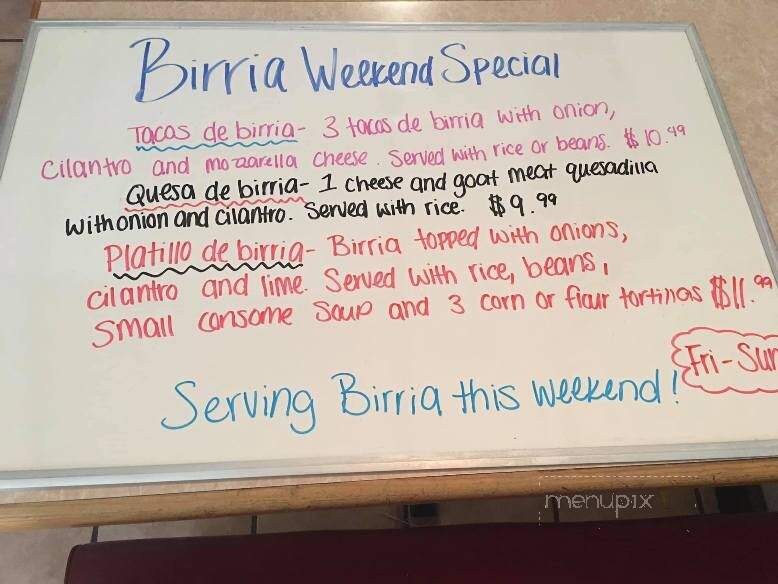 Birria Weekend Special
Tacos de birria - 3 tacos de birria with onion,
cilantro and mozzarella cheese. Served with rice or beans. $10.49
Quesa de birria - 1 cheese and goat meat quesadilla
with onion and cilantro. Served with rice. $9.99
Platillo de birria - Birria topped with onions,
cilantro and lime. Served with rice, beans,
small consome soup and 3 corn or flour tortillas $11.99
Fri - Sun
Serving Birria this weekend!
menupix